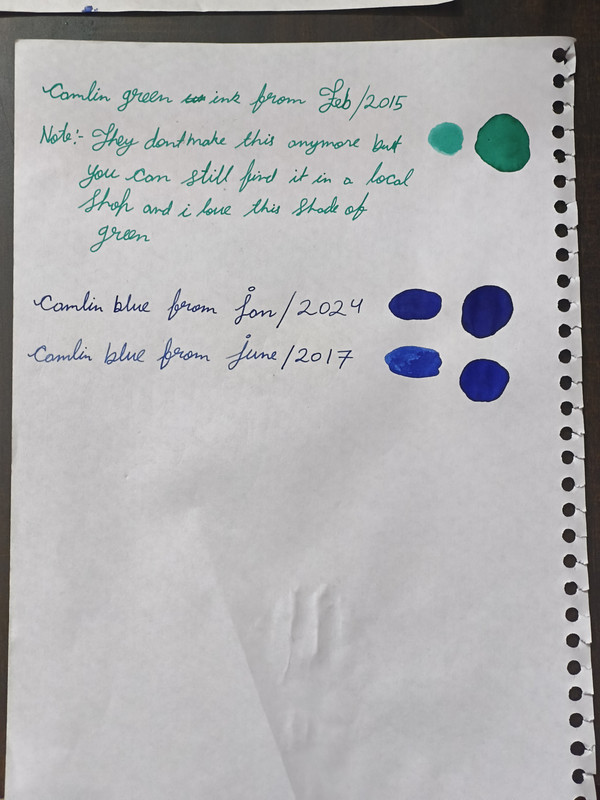 Camlin green ink from Feb/2015
Note:- They dont make this anymore but
you can still find it in a local
Shop and i love this Shade of
green
Camlin blue from Jan/2024
Camlin blue from June/2017